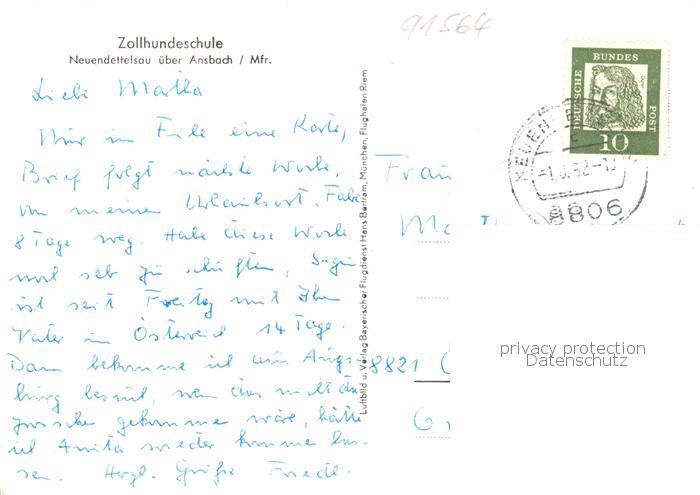 91564
Zollhundeschule
Neuendettelsau über Ansbach / Mfr.
Liebe Martha
Nur in Eile eine Karte,
Brief folgt nächste Woche,
von meinem Urlaubsort. Fahre
8 Tage weg. Habe diese Woche
noch sehr zu schuften,
ist seit Freitag mit Ihrem
Vater in Österreich 14 Tage.
Dann bekomme ich aus Augs-
burg Besuch, wenn das nicht da-
zwischen gekommen wäre, hätte
ich Anita wieder kommen las-
sen. Herzl. Grüße Friedl.
Luftbild u. Verlag Bayerischer Flugdienst Hans Bertram, München, Flughafen Riem
DEUTSCHE
BUNDES
POST
10
8806
Frau
8821
privacy protection
Datenschutz